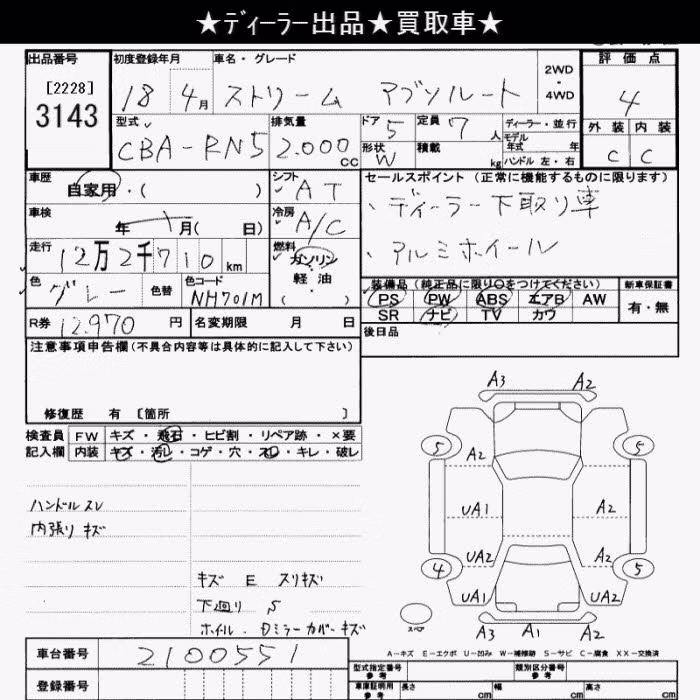 ★ディーラー出品★買取車★
出品番号 初度登録年月 車名・グレード 2WD・4WD 評価点
[2228]
3143
18 4月 ストリーム アブソルート 4
型式 排気量 ドア 5 定員 7人 ディーラー・並行 外装 内装
CBA-RN5 2.000cc 形状 W 積載 kg モデル年式 年 ハンドル 左・右 C C
車歴 自家用・( ) シフト AT セールスポイント(正常に機能するものに限ります)
車検 年 月( 日) 冷房 A/C ・ディーラー下取り車
走行 12万2千710km 燃料 ガソリン 軽油 ( ・ ) ・アルミホイール
色 グレー 色替 色コード NH701M
装備品(純正品に限り○をつけてください) 新車保証書
PS PW ABS エアB AW 有・無
SR ナビ TV カワ
R券 12.970円 名変期限 月 日 後日品
注意事項申告欄(不具合内容等は具体的に記入して下さい)
修復歴 有 [箇所 ]
検査員 FW キズ・飛石・ヒビ割・リペア跡・×要
記入欄 内装 キズ・汚レ・コゲ・穴・スレ・キレ・破レ
A3 A2
5 5
A2
UA1 A2
UA2 A2
4 5
UA1 UA2
スペア
A3 A1 A2
ハンドルスレ
内張り キズ
キズ E スリキズ
下廻り S
ホイール・Dミラーカバーキズ
A-キズ E-エクボ U-凹み W-補修跡 S-サビ C-腐食 XX-交換済
車台番号 2100551
登録番号
型式指定番号 参考 類別区分番号 参考
車庫証明用 参考 長さ cm 幅 cm 高さ cm